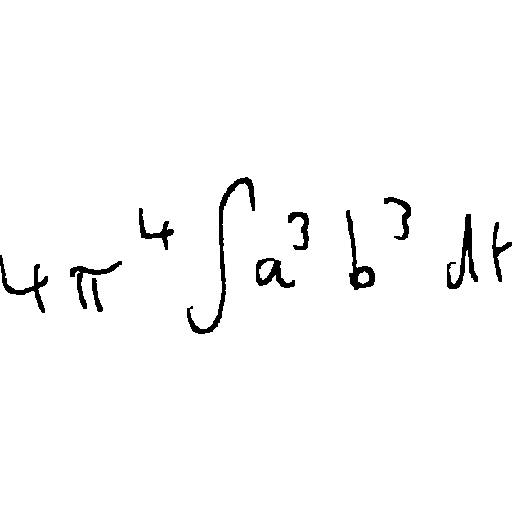 4π⁴∫a³b³dt